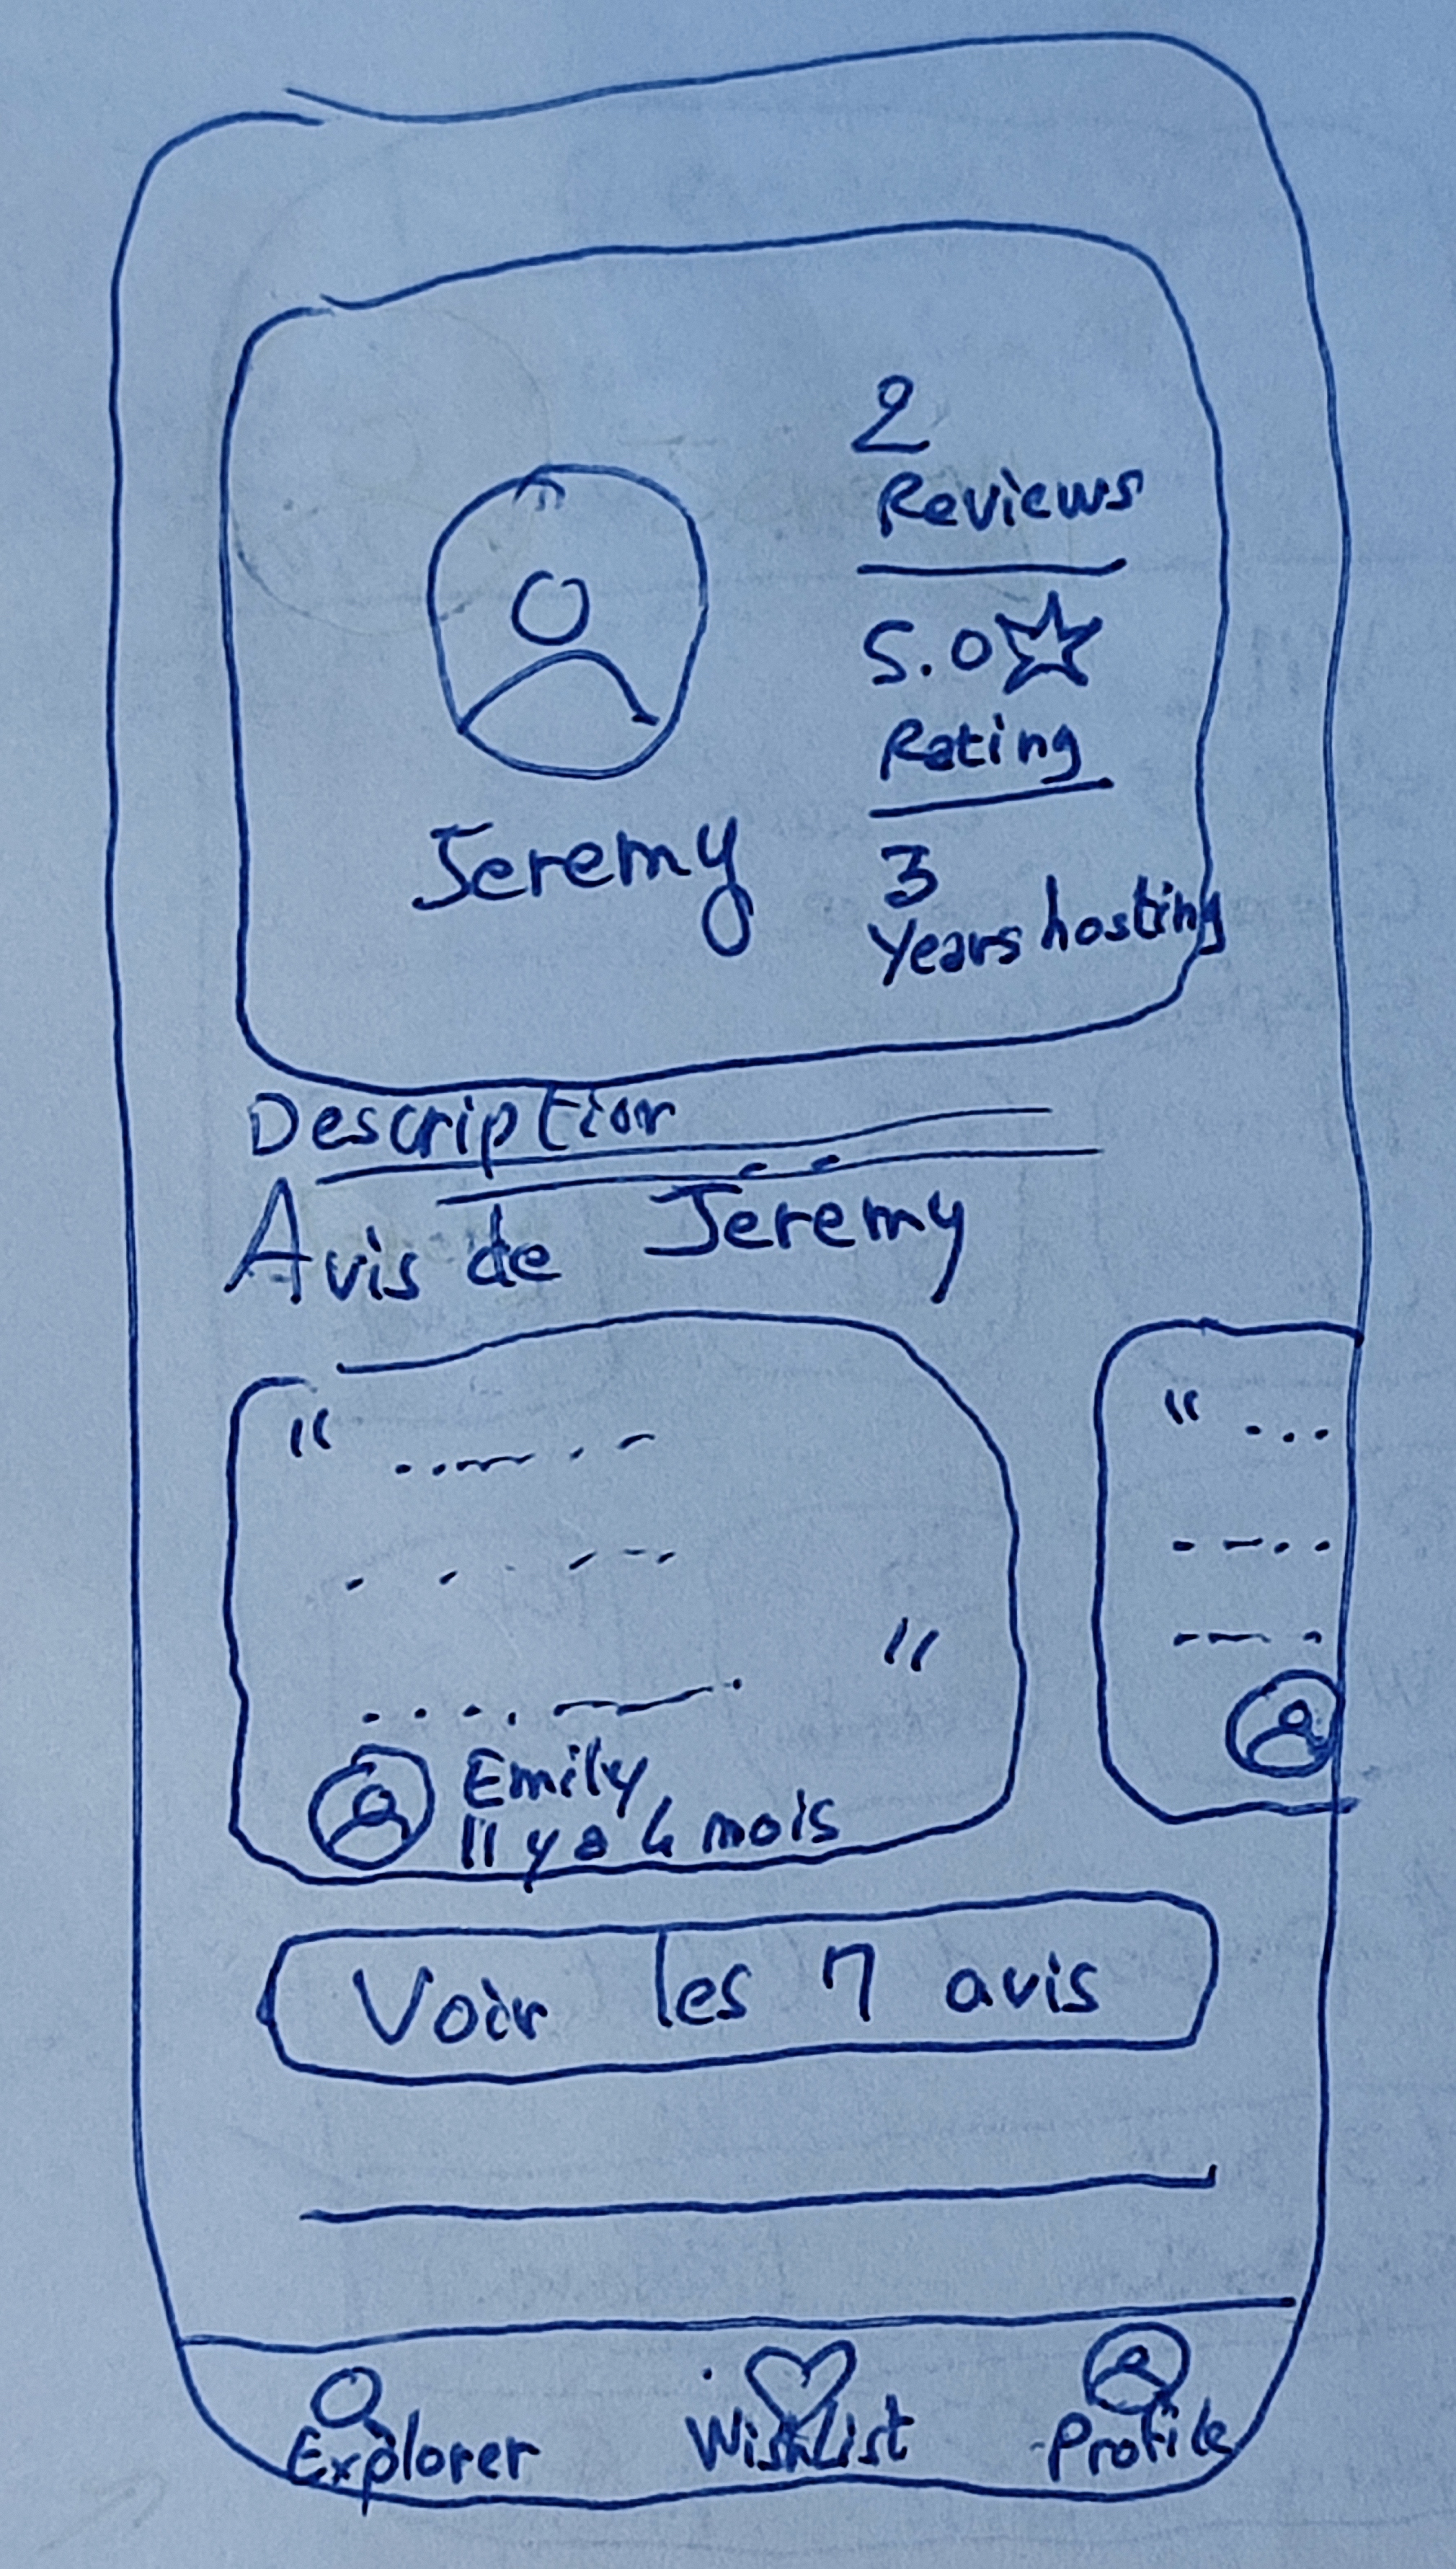 2
Reviews
5.0
Rating
3
Years hosting
Jeremy
Description
Avis de Jeremy
“
”
Emily
Il y a 4 mois
“
Voir les 7 avis
Explorer
Wishlist
Profile